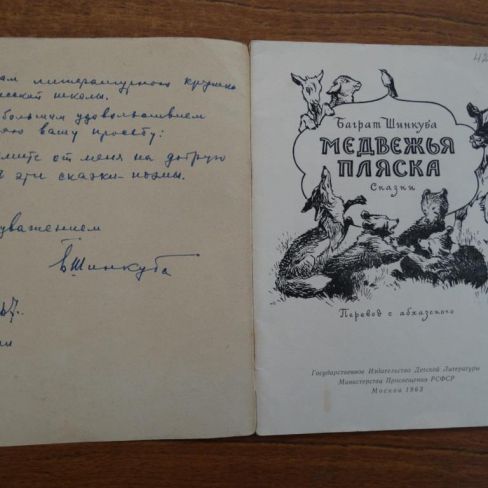 ам литературного кружка
ской школы.
большим удовольствием
яю вашу просьбу:
мите от меня на добрую
ь эти сказки-поэмы.
уважением
БШинкуба
67.
42
Баграт Шинкуба
МЕДВЕЖЬЯ
ПЛЯСКА
Сказки
Перевод с абхазского
Государственное Издательство Детской Литературы
Министерства Просвещения РСФСР
Москва 1963